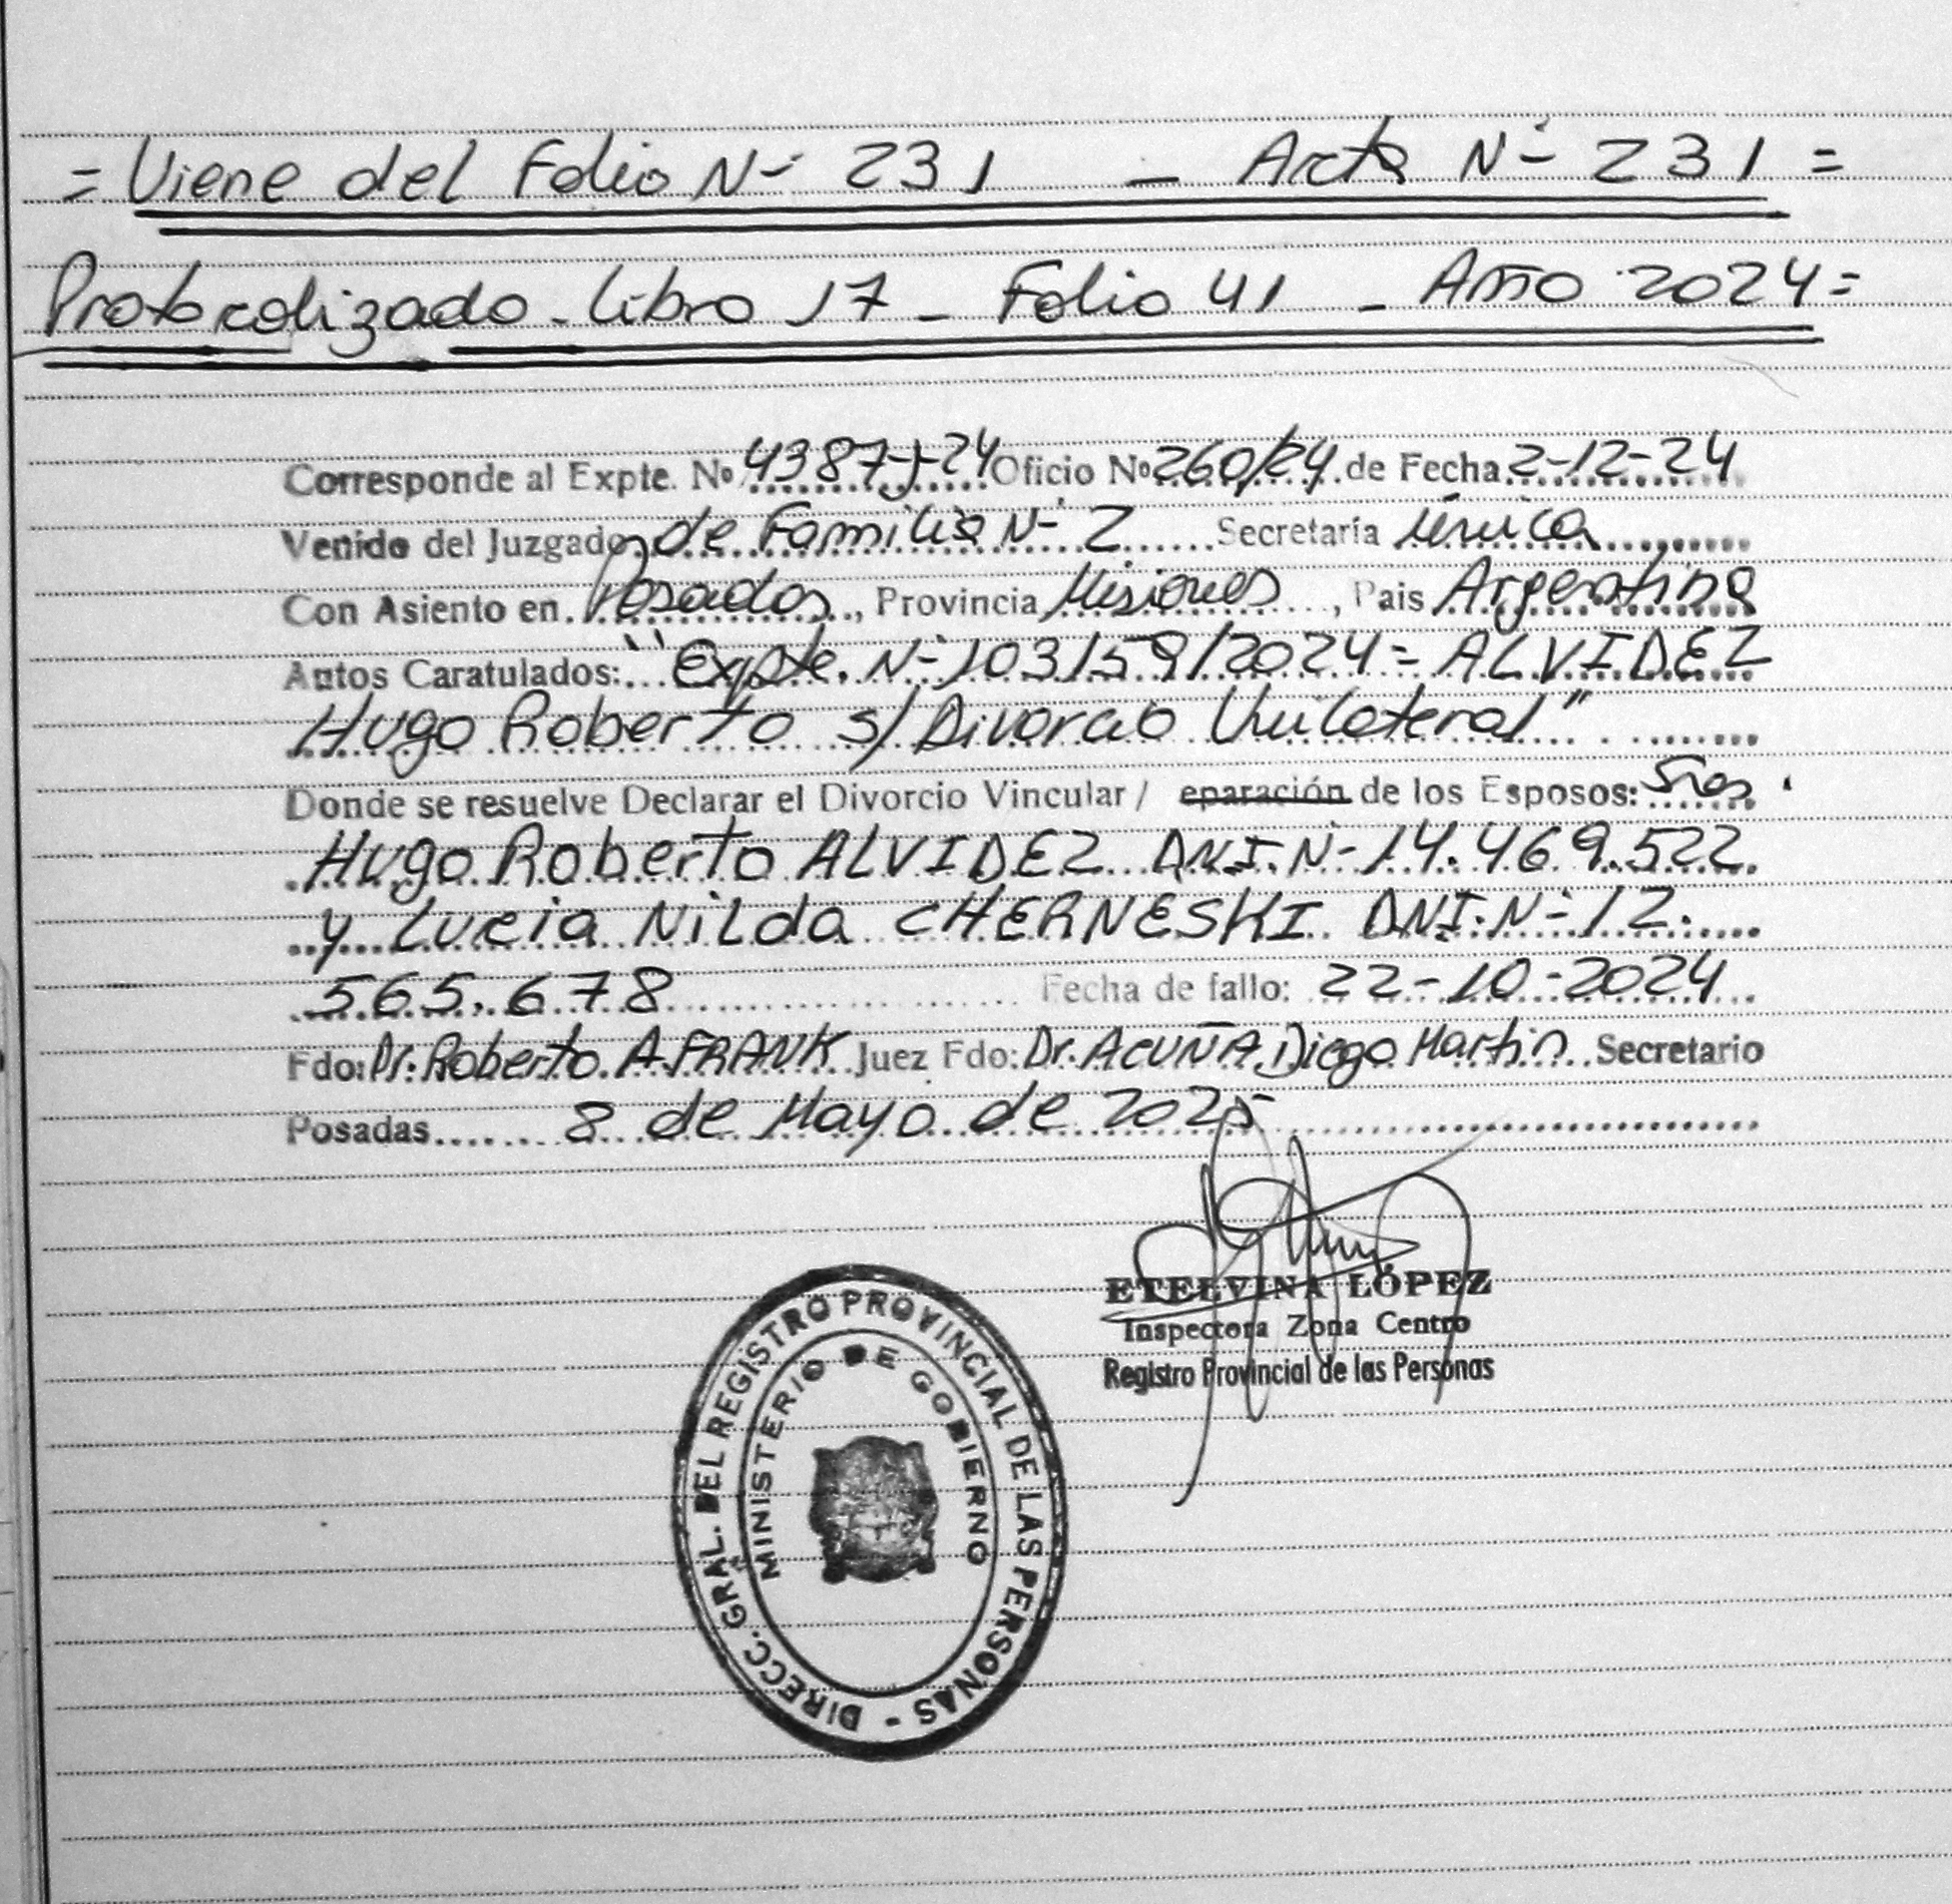 = Viene del Folio Nº 231 - Acta Nº 231 =
Protocolizado - Libro 17 - Folio 41 - Año 2024 =
Corresponde al Expte. Nº 4387-J-24 Oficio Nº 260/24 de Fecha 2-12-24
Venido del Juzgado de Familia Nº 2 Secretaría única
Con Asiento en Posadas, Provincia Misiones, Pais Argentina
Autos Caratulados: "Expte. Nº 103159/2024 = ALVIDEZ
Hugo Roberto s/ Divorcio Unilateral"
Donde se resuelve Declarar el Divorcio Vincular / eparación de los Esposos: Sres.
Hugo Roberto ALVIDEZ DNI. Nº 14.469.522
y Lucia Nilda CHERNESKI DNI. Nº 12.
565.678 Fecha de fallo: 22-10-2024
Fdo: Dr. Roberto A. FRANK Juez Fdo: Dr. ACUÑA Diego Martin Secretario
Posadas 8 de Mayo de 2025
ETELVINA LÓPEZ
Inspectora Zona Centro
Registro Provincial de las Personas
DIRECC. GRAL. DEL REGISTRO PROVINCIAL DE LAS PERSONAS -
MINISTERIO DE GOBIERNO